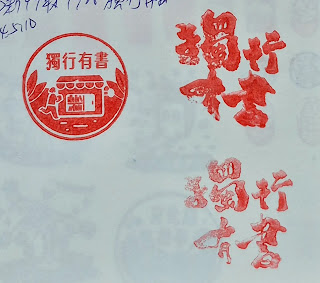 獨行有書
獨行
有書
獨行
有書